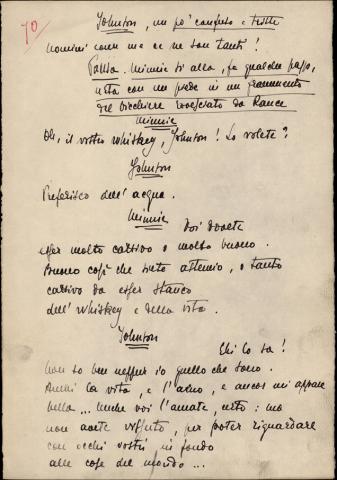 70
Johnson, un po' confuso e triste
uomini come me ce ne son tanti!
Pausa. Minnie si alza, fa qualche passo,
urta con un piede in un frammento
del bicchiere rovesciato da Rance
Minnie
Oh, il vostro whiskey, Johnson! Lo volete?
Johnson
Preferisco dell' acqua.
Minnie
Voi dovete
esser molto cattivo o molto buono.
Buono così che siete astemio, o tanto
cattivo da esser stanco
dell' whiskey e della vita.
Johnson
Chi lo sa!
Non so ben neppur io quello che sono.
Amai la vita, e l'amo, e ancor mi appare
bella ... Anche voi l'amate, certo: ma
non avete vissuto, per poter riguardare
con occhi vostri in fondo
alle cose del mondo ...